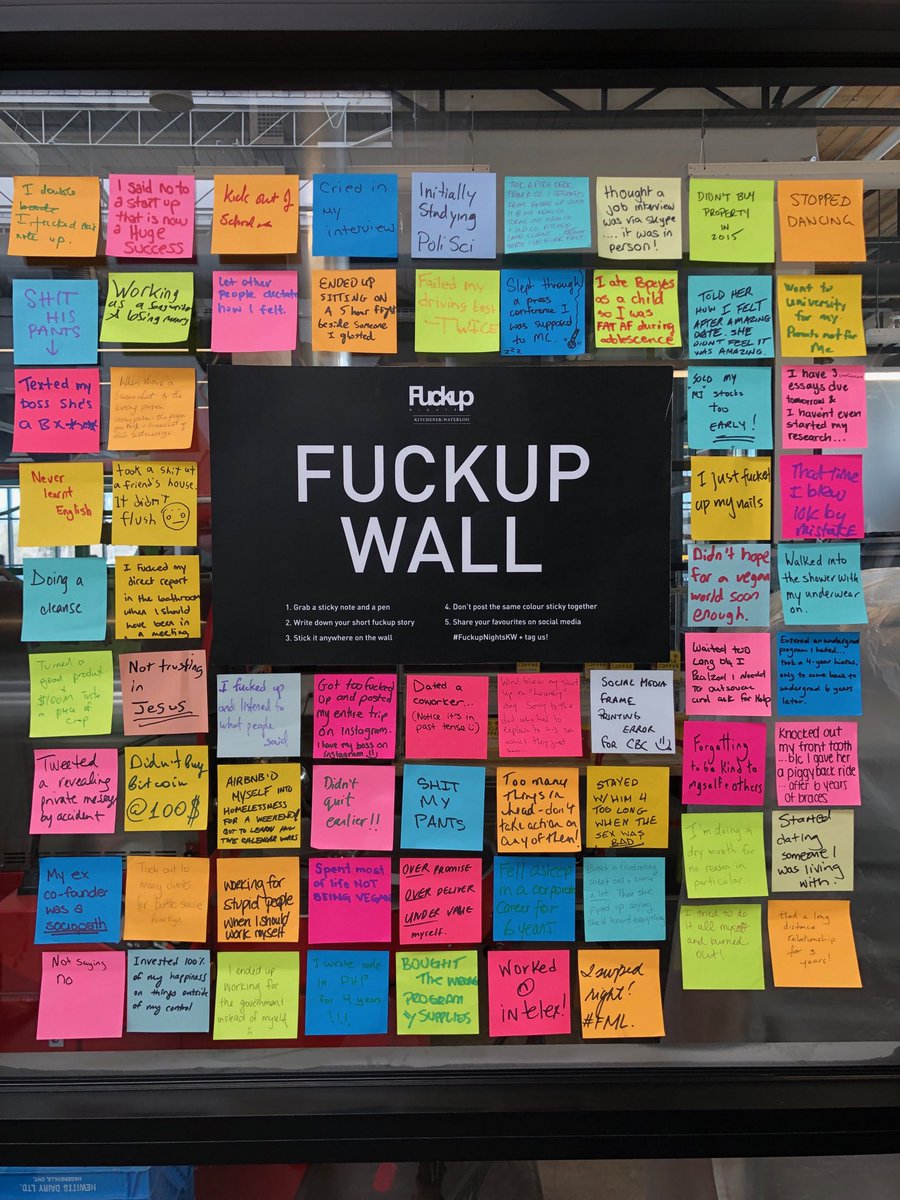 I double
I fucked this
note up.
I said no to
a start up
that is now
a Huge
success
Kick out of
School
Cried in
my
interview
Initially
Studying
Poli Sci
thought a
job interview
was via Skype
.... it was in
person!
DIDN'T BUY
PROPERTY
IN
2015
STOPPED
DANCING
SHIT
HIS
PANTS
↓
Working
as a songwriter
& losing money
Let other
people dictate
how I felt.
ENDED UP
SITTING ON
A 5 hour flight
beside someone
I ghosted
Failed my
driving test
-TWICE
Slept through
a press
conference I
was supposed
to MC.
zzz
I ate
as a child
so I was
FAT AF during
adolescence
TOLD HER
HOW I FELT
AFTER AMAZING
DATE. SHE
DIDN'T FEEL IT
WAS AMAZING.
Went to
university
for my
Parents not for
Me
Texted my
boss she's
a B****
SOLD my
MJ stocks
too
EARLY!
I have 3
essays due
tomorrow &
I haven't even
started my
research...
Never
learnt
English
took a shit at
a friend's house.
It didn't
flush
Fuckup
NIGHTS
KITCHENER-WATERLOO
FUCKUP
WALL
1. Grab a sticky note and a pen
2. Write down your short fuckup story
3. Stick it anywhere on the wall
4. Don't post the same colour sticky together
5. Share your favourites on social media
#FuckupNightsKW + tag us!
I just fucked
up my nails
That time
I blew
10k by
mistake
Doing a
cleanse
I fucked my
direct report
in the bathroom
when I should
have been in
a meeting
Didn't hope
for a vegan
world soon
enough.
Walked into
the shower with
my underwear
on.
Turned a
good product
+
$100M into
a piece of
crap
Not trusting
in
Jesus
I fucked up
and listened to
what people
said
Got too fucked
up and posted
my entire trip
on Instagram.
I have my boss on
instagram
Dated a
coworker...
(Notice it's in
past tense :)
SOCIAL MEDIA
FRAME
PRINTING
ERROR
FOR CBC
Waited too
long b4 I
Realized I needed
to outsource
and ask for help
Entered an undergrad
program I hated...
took a 4-year hiatus,
only to come back to
undergrad 6 years
later.
Tweeted
a revealing
private message
by accident
Didn't buy
bitcoin
@100$
AIRBNB'D
MYSELF INTO
HOMELESSNESS
FOR A WEEKEND!
GOT TO LEARN HOW
THE CALENDAR WORKS
Didn't
quit
earlier!!
SHIT
MY
PANTS
Too many
things in
head-don't
take action on
any of them!
STAYED
W/ HIM 4
TOO LONG
WHEN THE
SEX WAS
BAD!
Forgetting
to be kind to
myself + others
Knocked out
my front tooth
...b/c I gave her
a piggyback ride
...after 6 years
of braces
My ex
co-founder
was a
sociopath
Took out to
many clients
for bottle service
WORKING FOR
STUPID PEOPLE
when I should
work myself
Spent most
of life NOT
BEING VEGAN
OVER PROMISE
OVER DELIVER
UNDER VALUE
myself.
Fell asleep
in a corporate
career for
6 years
I'm doing a
dry month for
no reason in
particular.
Started
dating
someone I
was living
with!
Not saying
no
Invested 100%
of my happiness
on things outside
of my control
I ended up
working for
the government
instead of myself
I wrote code
in PHP
for 4 years
!!!
BOUGHT
THE WRONG
PROGRAM
SUPPLIES
Worked
@
intelex!
I swiped
right!
#FML.
I tried to do
it all myself
and burned
out!
Had a long
distance
relationship
for 3
years!
HEWITTS DAIRY LTD
HAGERSVILLE, ONT.